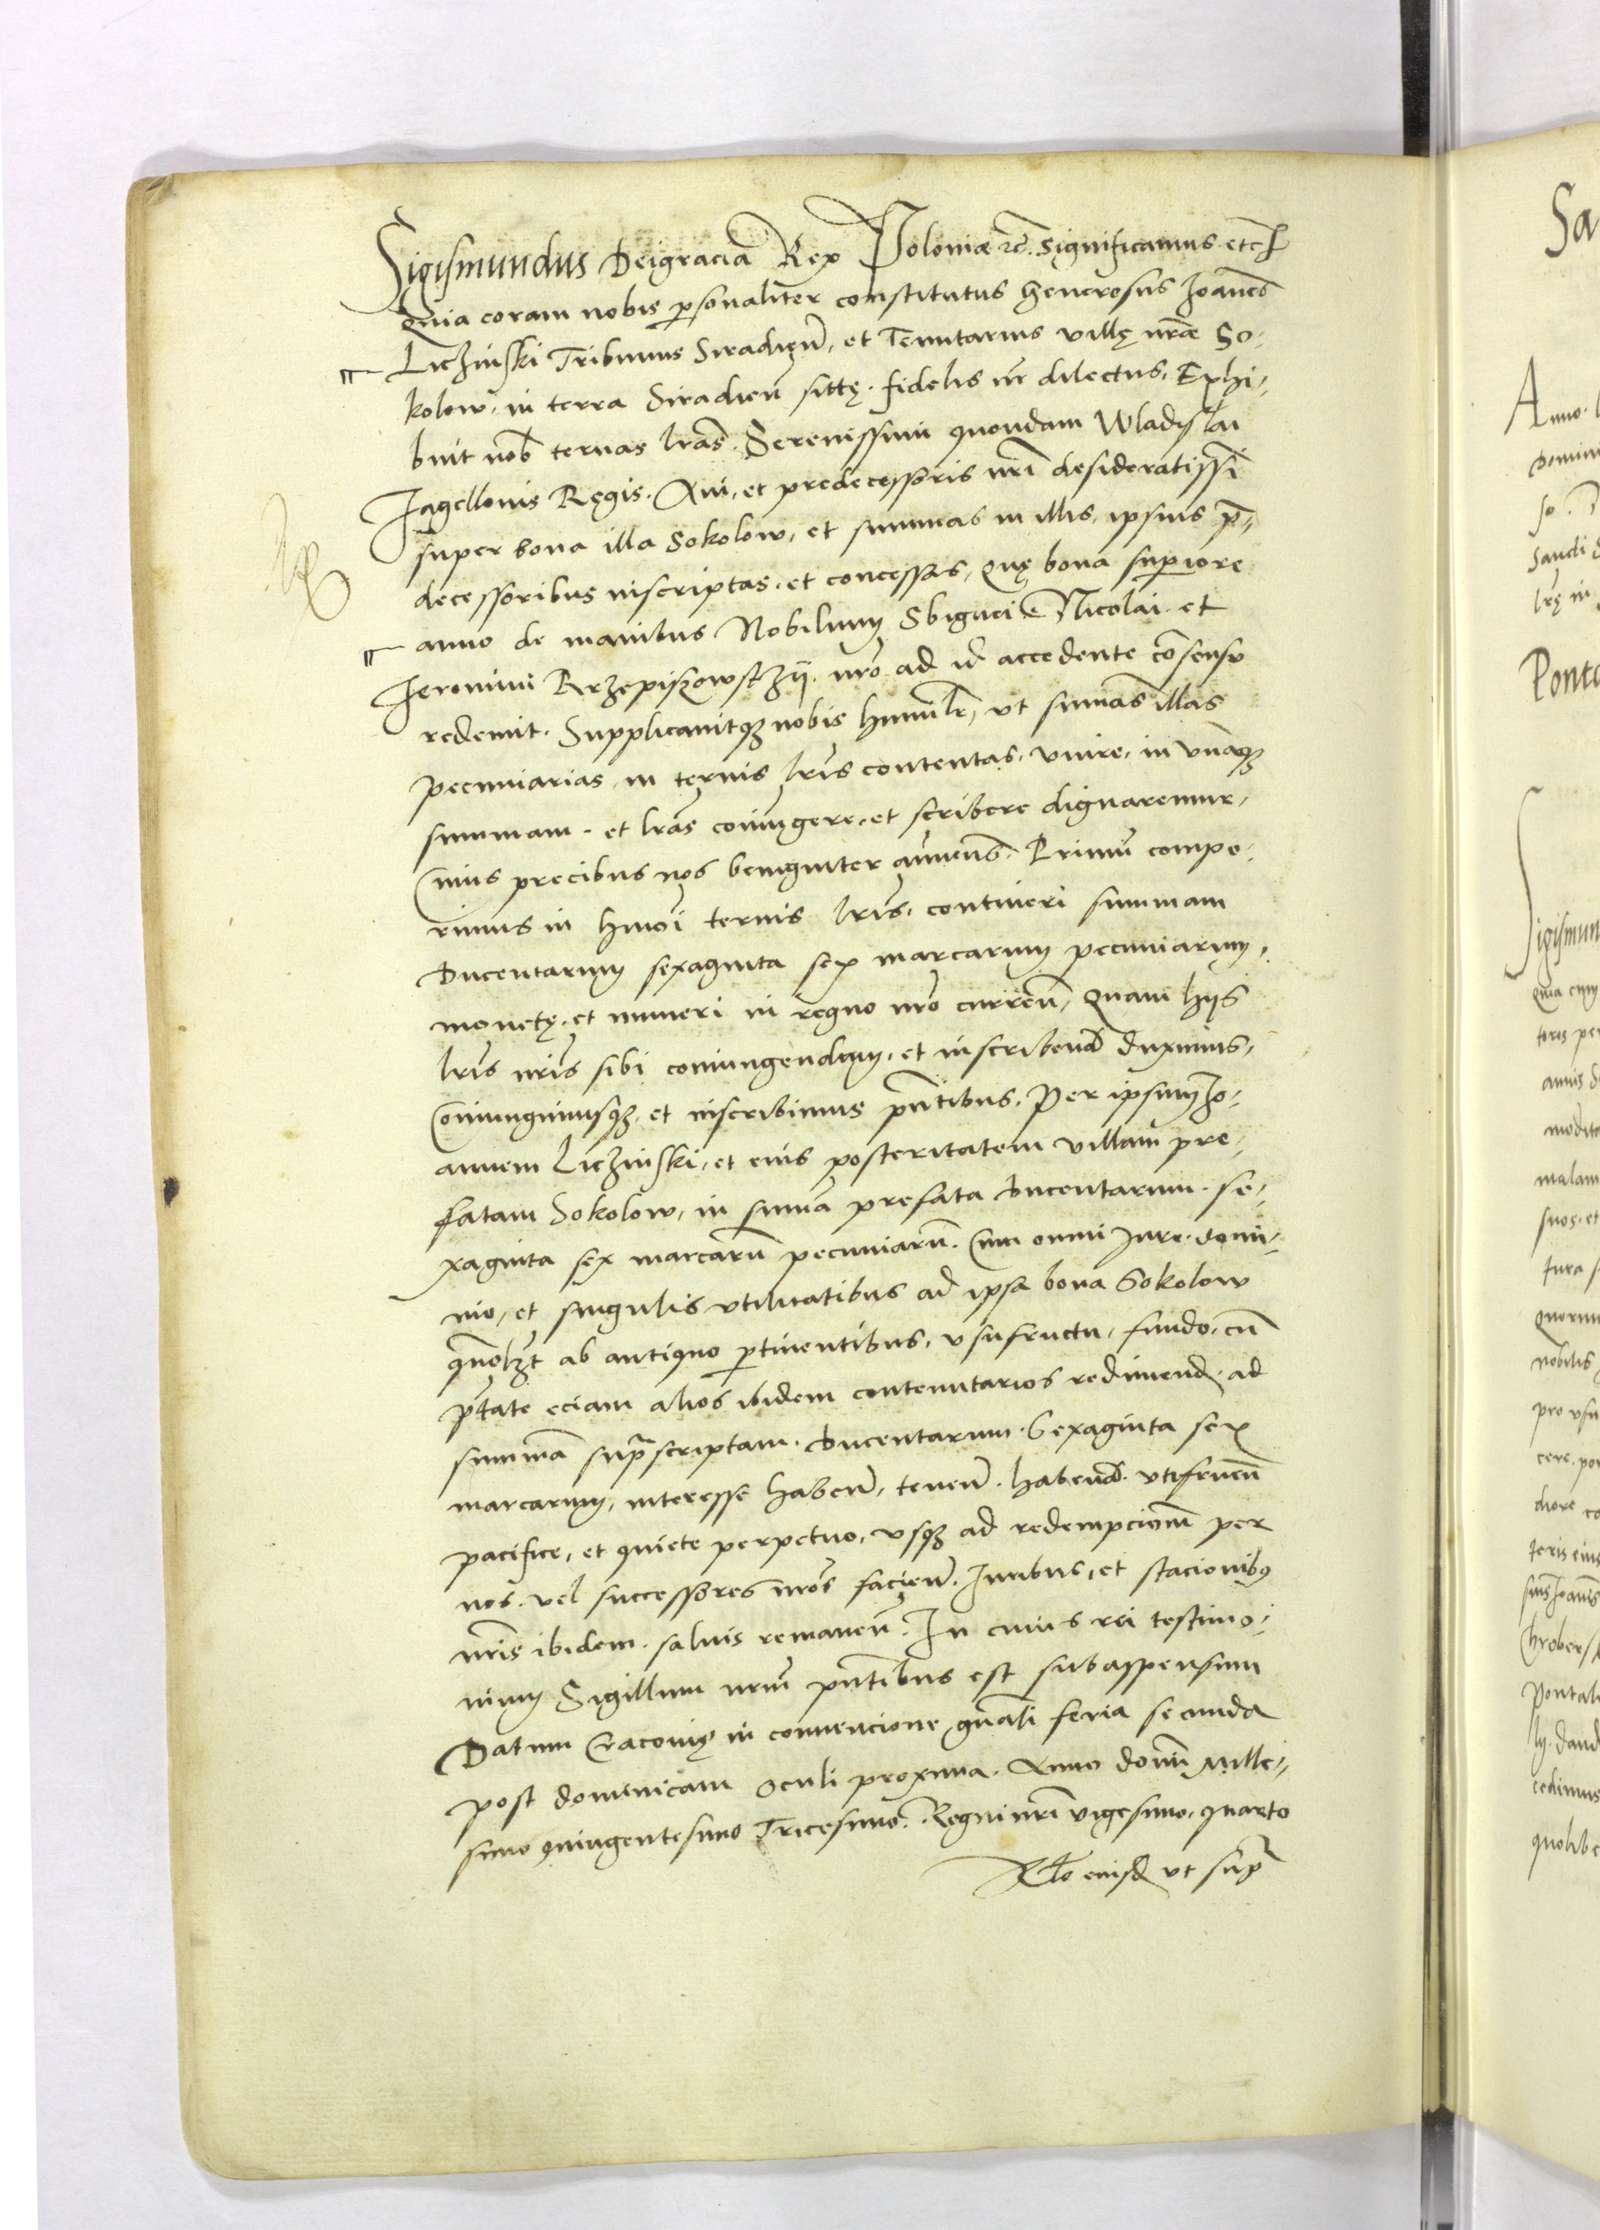 Sigismundus Deigracia Rex Poloniæ etc. Significamus etc.
Quia coram nobis personaliter constitutus Generosus Ioannes
Liczinski Tribunus Siradien, et Tenutarius villę nræ So-
kolow, in terra Siradien sittę. fidelis nr dilectus, Exhi-
buit nob ternas lras. Serenissimi quondam Wladislai
Jagellonis Regis. Aui, et predecessoris nri desideratissi
super bona illa Sokolow, et summas in illis, ipsius pre-
decessoribus inscriptas, et concessas, Quę bona superiore
anno de manibus Nobilium Sbignei Nicolai et
Jeronimi Rzepiszowsczij. nro ad id accedente cosensu
redemit. Supplicauitqz nobis humilr, vt sumas illas
pecuniarias in ternis lris contentas, vnire, in vnaqz
summam. et lras coniungere, et scribere dignaremur,
Cuius precibus nos benigniter annuens. Primu compe-
rimus in hmoi ternis lris, contineri summam
Ducentarum sexaginta sex marcarum pecuniarum,
monetę, et numeri in regno nro curren, Quam hijs
lris nris sibi coniungendum, et inscribend duximus,
Coniungimusqz, et inscribimus pntibus, Per ipsum Jo-
annem Liczinski, et eius posteritatem villam pre-
fatam Sokolow, in suma prefata Ducentarum. se-
xaginta sex marcaru pecuniaru. Cum omni Iure. domi-
nio, et singulis vtilitatibus ad ipsa bona Sokolow
qmolzt ab antiquo ptinentibus, vsufructu, fundo, cu
ptate eciam alios ibidem contenutarios redimend, ad
summa suprascriptam. Ducentarum. Sexaginta sex
marcarum, interesse haben, tenen. habend. vtifruen
pacifice, et quiete perpetuo, vsqz ad redempcionem per
nos. vel successores nros facien. Iuribus, et stacionibus
nris ibidem. saluis remanen. In cuius rei testimo-
nium Sigillum nrum pntibus est subappensum
Datum Cracovię in conuencione gnali feria secunda
post dominicam Oculi proxima. Anno domi Mille-
simo quingentesimo Tricesimo. Regni nri vigesimo. quarto
Rlo eiusd vt supra